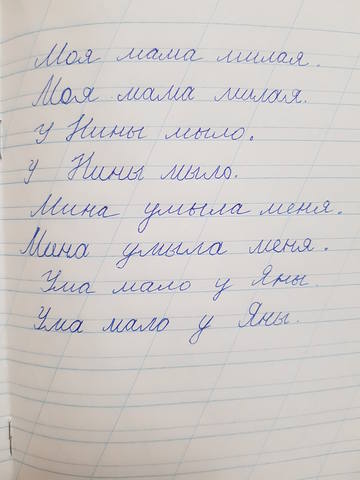 Моя мама милая.
Моя мама милая.
У Нины мыло.
У Нины мыло.
Мина умыла меня.
Мина умыла меня.
Ума мало у Яны.
Ума мало у Яны.